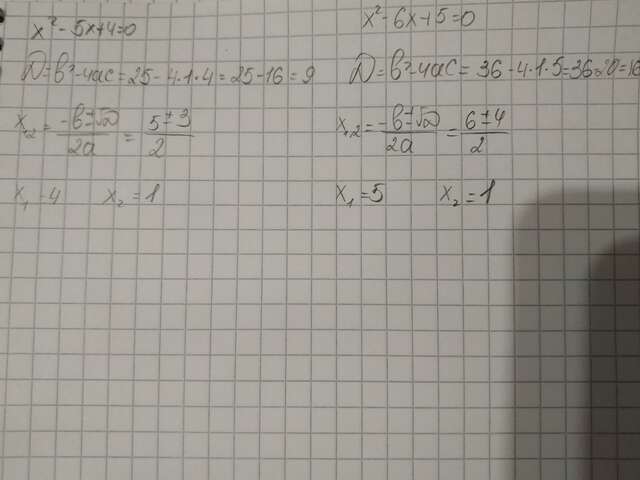 x² - 5x+4=0
D=b²-4ac=25-4·1·4=25-16=9
x₁,₂ = (-b±√D)/2a = (5±3)/2
x₁=4 x₂=1
x²-6x+5=0
D=b²-4ac=36-4·1·5=36-20=16
x₁,₂=(-b±√D)/2a = (6±4)/2
x₁=5 x₂=1